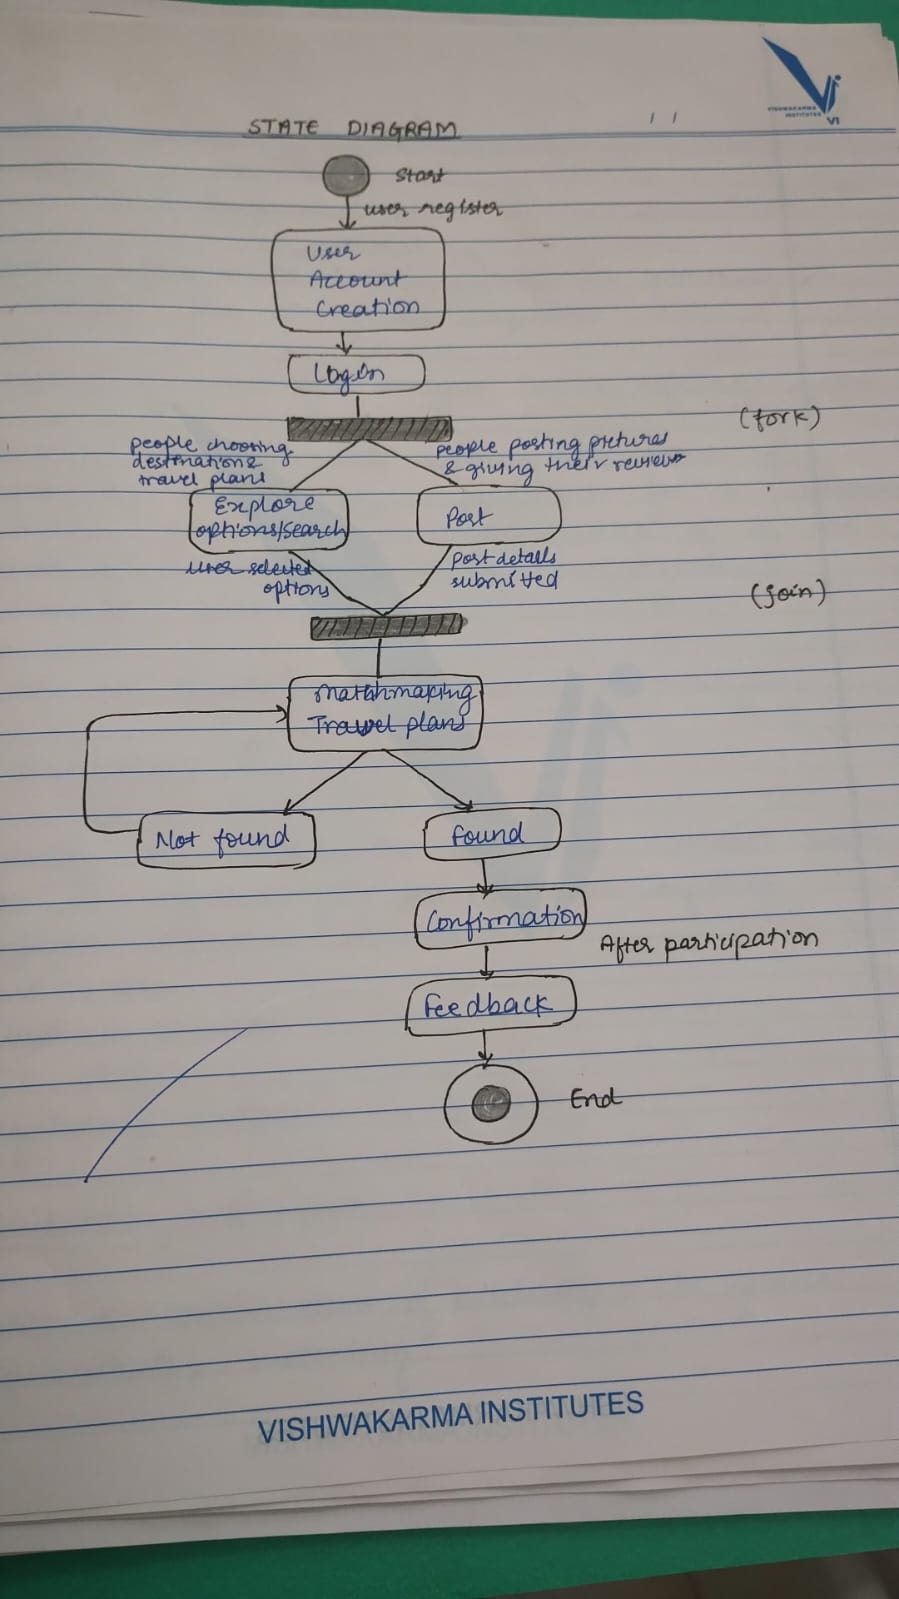 VISHWAKARMA
INSTITUTES
VI
STATE DIAGRAM
/ /
Start
user register
User
Account
Creation
Login
(fork)
people choosing
destination &
travel plans
people posting pictures
& giving their reviews
Explore
options/search
Post
user selected
options
post details
submitted
(join)
Matchmaking
Travel plans
Not found
found
Confirmation
After participation
Feedback
End
VISHWAKARMA INSTITUTES